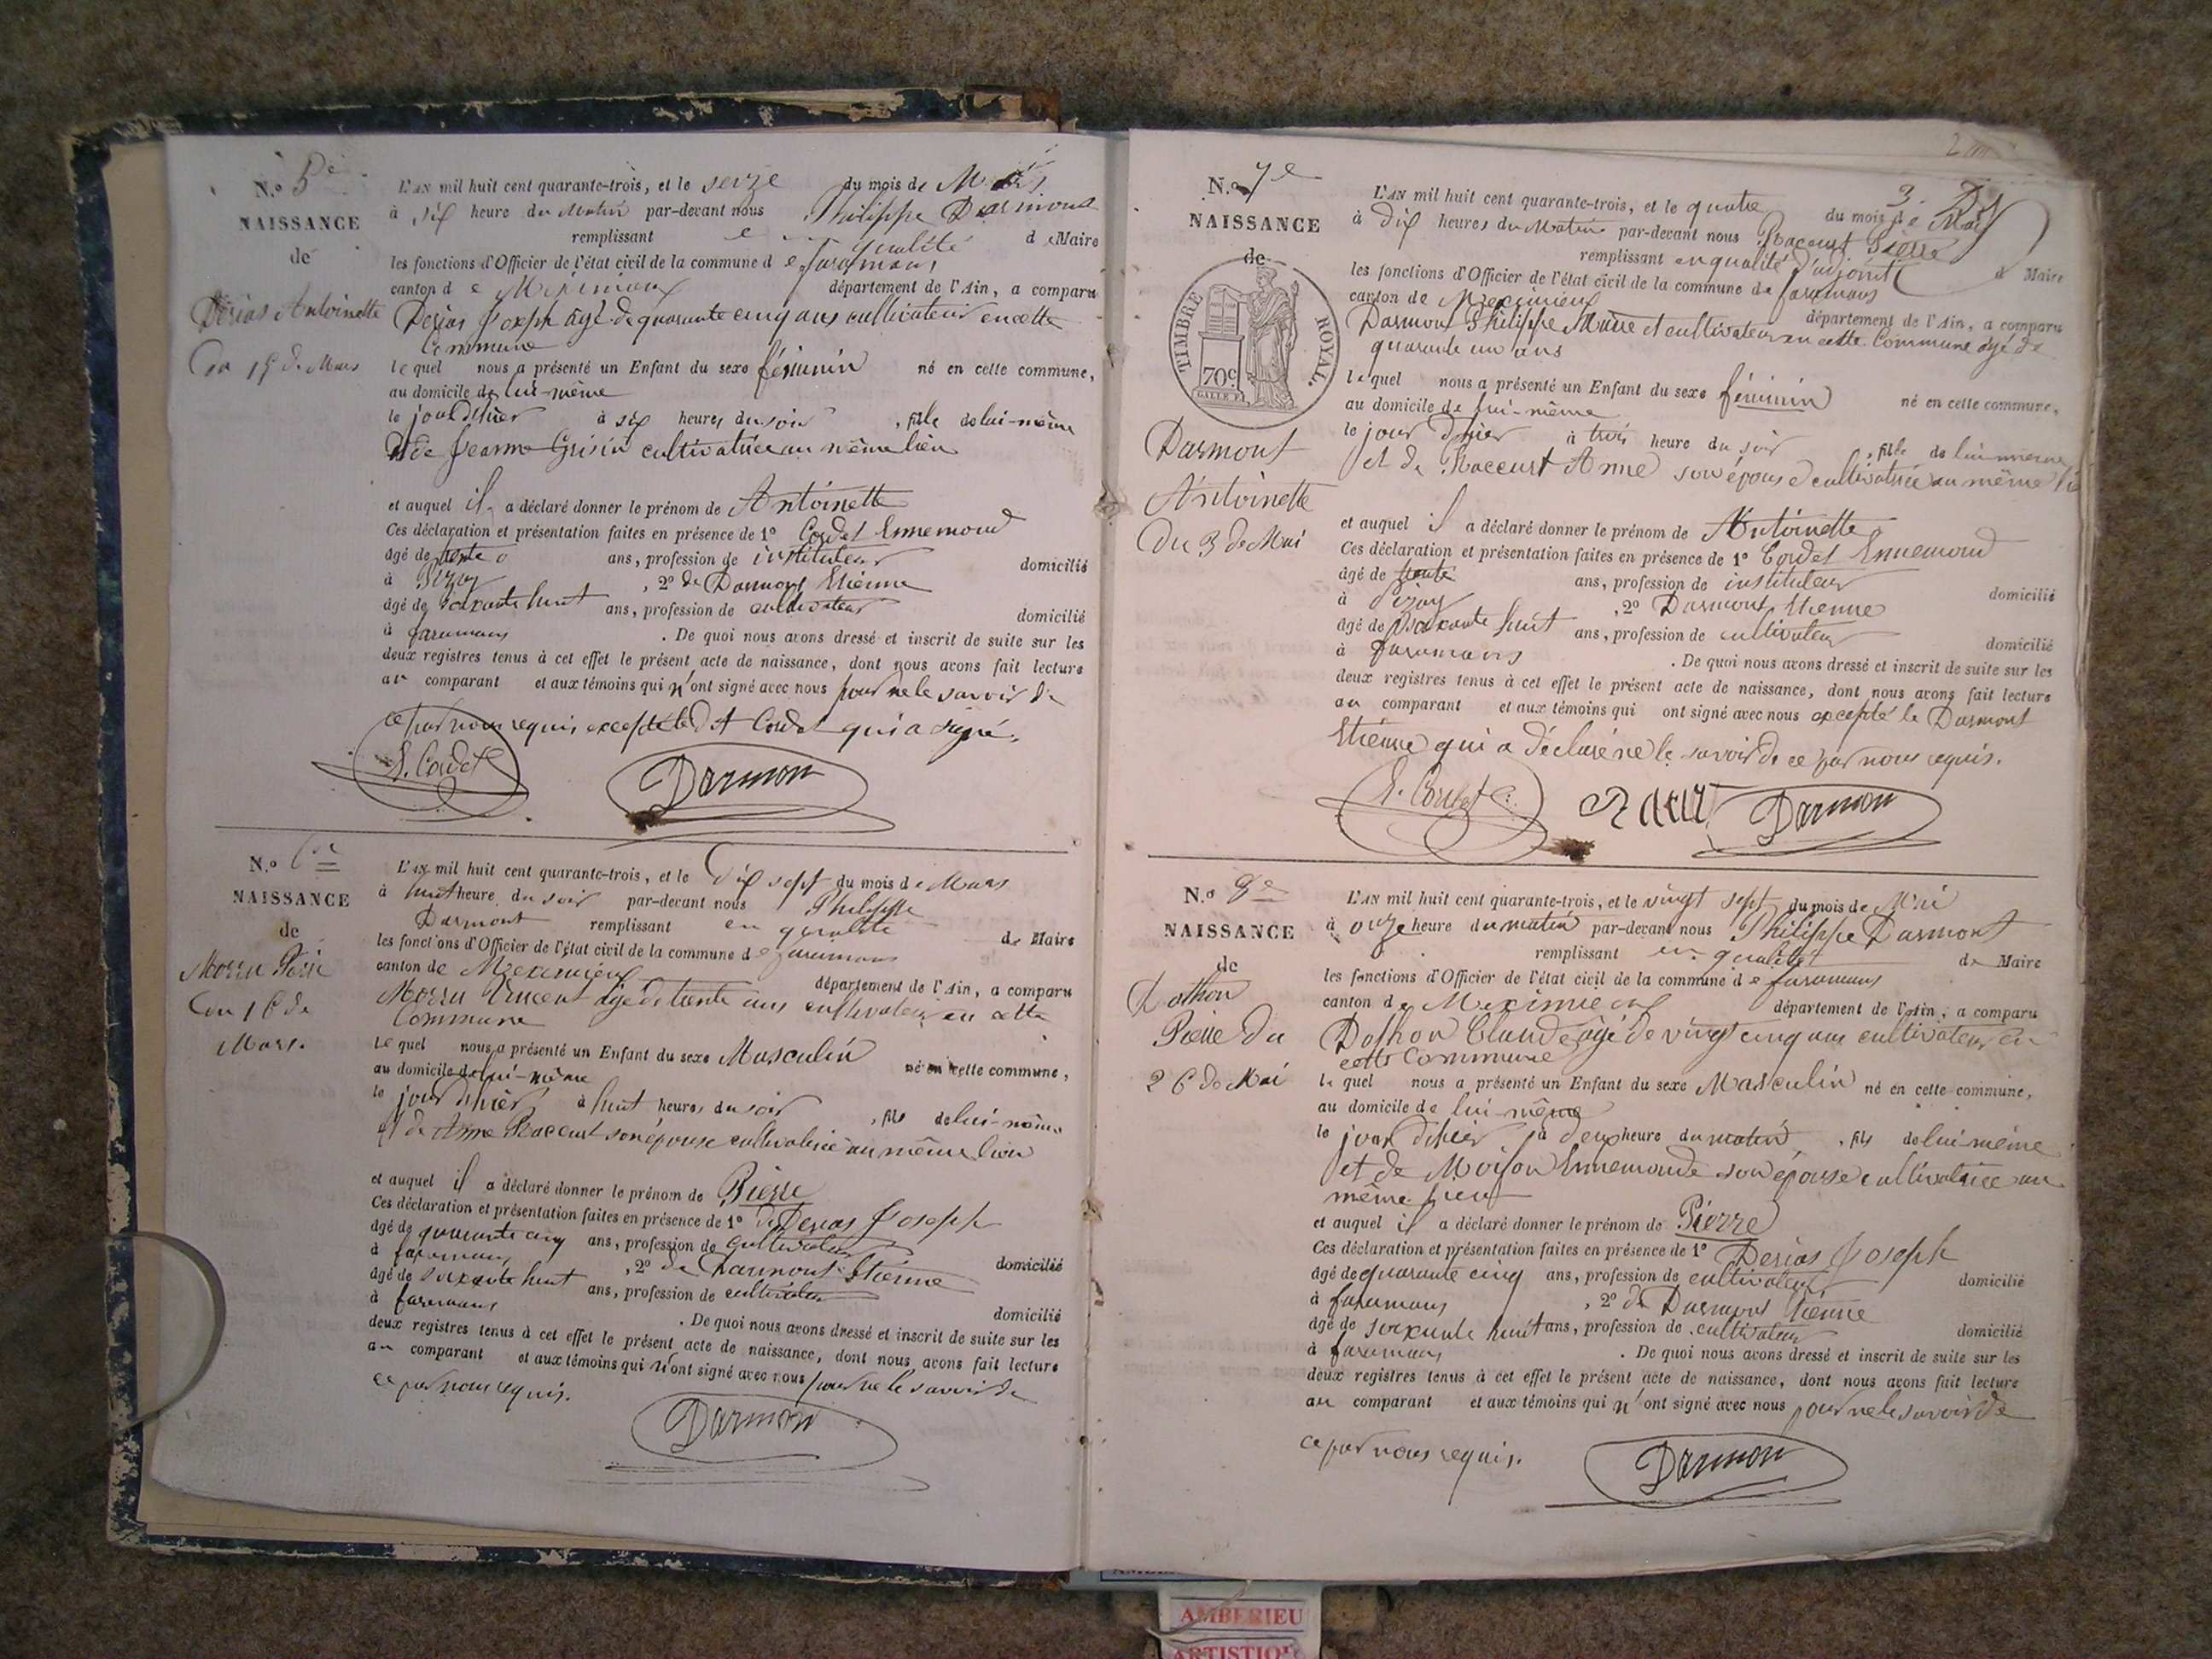 N.º 5e
NAISSANCE
de
Derias Antoinette
du 15 de Mars
L'AN mil huit cent quarante-trois, et le seize du mois de Mars
à six heure du Matin par-devant nous Philippe Darmont
remplissant en qualité de Maire
les fonctions d'Officier de l'état civil de la commune de faramans
canton de Meximieux département de l'Ain, a comparu
Derias Joseph âgé de quarante cinq ans cultivateur en cette
Commune
lequel nous a présenté un Enfant du sexe féminin né en cette commune,
au domicile de lui-même
le jour d'hier à six heures du soir, fille de lui-même
et de Jeanne Grisin cultivatrice au même lieu
et auquel il a déclaré donner le prénom de Antoinette
Ces déclaration et présentation faites en présence de 1º Cordet Ennemond
âgé de trente ans, profession de instituteur domicilié
à Pizay, 2º de Darmont Etienne
âgé de soixante huit ans, profession de cultivateur domicilié
à faramans. De quoi nous avons dressé et inscrit de suite sur les
deux registres tenus à cet effet le présent acte de naissance, dont nous avons fait lecture
au comparant et aux témoins qui n'ont signé avec nous pour ne le savoir de
ce par nous requis excepté led't Cordet qui a signé.
E. Cordet
Darmon
N.º 6e
NAISSANCE
de
Morru Pierre
du 16 de
Mars.
L'AN mil huit cent quarante-trois, et le Dix sept du mois de Mars
à huit heure du soir par-devant nous Philippe
Darmont remplissant en qualité de Maire
les fonctions d'Officier de l'état civil de la commune de faramans
canton de Meximieux département de l'Ain, a comparu
Morru Vincent âgé de trente ans cultivateur en cette
Commune
Lequel nous a présenté un Enfant du sexe Masculin né en cette commune,
au domicile de lui-même
le jour d'hier à huit heures du soir, fils de lui-même
et de Anne Raccurt son épouse cultivatrice au même lieu
et auquel il a déclaré donner le prénom de Pierre
Ces déclaration et présentation faites en présence de 1º de Derias Joseph
âgé de quarante cinq ans, profession de cultivateur domicilié
à faramans, 2º de Darmont Etienne
âgé de soixante huit ans, profession de cultivateur domicilié
à faramans. De quoi nous avons dressé et inscrit de suite sur les
deux registres tenus à cet effet le présent acte de naissance, dont nous avons fait lecture
au comparant et aux témoins qui n'ont signé avec nous pour ne le savoir de
ce par nous requis.
Darmon
N.º 7e
NAISSANCE
de
TIMBRE ROYAL.
70c
Darmont
Antoinette
Du 3 de Mai
L'AN mil huit cent quarante-trois, et le quatre du mois de Mai
à dix heures du Matin par-devant nous Raccurt Pierre
remplissant en qualité d'adjoint d Maire
les fonctions d'Officier de l'état civil de la commune de faramans
canton de Meximieux département de l'Ain, a comparu
Darmont Philippe Maire et cultivateur en cette Commune âgé de
quarante un ans
lequel nous a présenté un Enfant du sexe féminin né en cette commune,
au domicile de lui-même
le jour d'hier à trois heure du soir, fille de lui-même
et de Raccurt Anne son épouse cultivatrice au même lie
et auquel il a déclaré donner le prénom de Antoinette
Ces déclaration et présentation faites en présence de 1º Cordet Ennemond
âgé de trente ans, profession de instituteur domicilié
à Pizay, 2º Darmont Etienne
âgé de soixante huit ans, profession de cultivateur domicilié
à faramans. De quoi nous avons dressé et inscrit de suite sur les
deux registres tenus à cet effet le présent acte de naissance, dont nous avons fait lecture
au comparant et aux témoins qui ont signé avec nous excepté le Darmont
Etienne qui a déclaré ne le savoir de ce par nous requis.
E. Cordet
Darmon
N.º 8e
NAISSANCE
de
Dothon
Pierre du
26 de Mai
L'AN mil huit cent quarante-trois, et le vingt sept du mois de Mai
à onze heure du matin par-devant nous Philippe Darmont
remplissant en qualité de Maire
les fonctions d'Officier de l'état civil de la commune de faramans
canton de Meximieux département de l'Ain, a comparu
Dothon Claude âgé de vingt cinq ans cultivateur en
cette Commune
lequel nous a présenté un Enfant du sexe Masculin né en cette commune,
au domicile de lui-même
le jour d'hier à deux heure du matin, fils de lui-même
et de Moifon Ennemonde son épouse cultivatrice au
même lieu
et auquel il a déclaré donner le prénom de Pierre
Ces déclaration et présentation faites en présence de 1º Derias Joseph
âgé de quarante cinq ans, profession de cultivateur domicilié
à faramans, 2º de Darmont Etienne
âgé de soixante huit ans, profession de cultivateur domicilié
à faramans. De quoi nous avons dressé et inscrit de suite sur les
deux registres tenus à cet effet le présent acte de naissance, dont nous avons fait lecture
au comparant et aux témoins qui n'ont signé avec nous pour ne le savoir de
ce par nous requis.
Darmon
AMBERIEU
ARTISTIQU